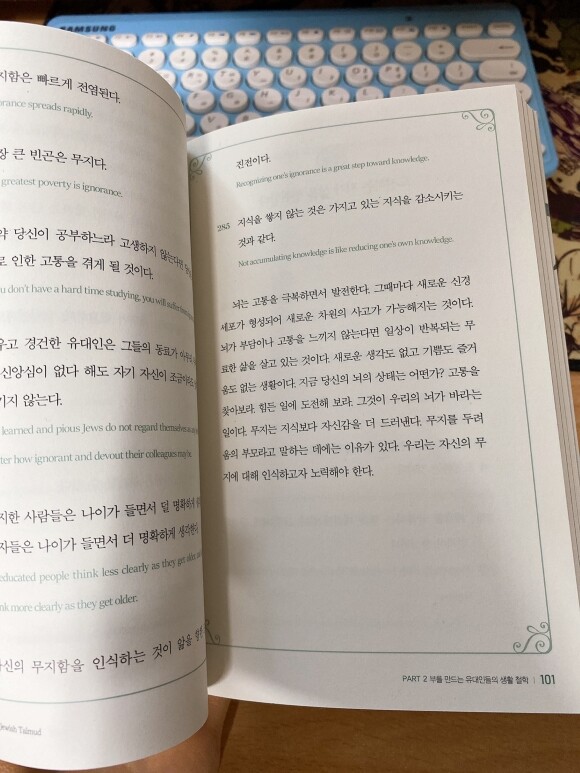 SAMSUNG
지함은 빠르게 전염된다.
orance spreads rapidly.
장 큰 빈곤은 무지다.
greatest poverty is ignorance.
약 당신이 공부하느라 고생하지 않는다면
로 인한 고통을 겪게 될 것이다.
ou don't have a hard time studying, you will suffer
우고 경건한 유대인은 그들의 동료가 아무리
신앙심이 없다 해도 자기 자신이 조금이라도
기지 않는다.
learned and pious Jews do not regard themselves as
tter how ignorant and devout their colleagues may be.
지한 사람들은 나이가 들면서 덜 명확하게
자들은 나이가 들면서 더 명확하게 생각한다.
educated people think less clearly as they get older,
nk more clearly as they get older.
자신의 무지함을 인식하는 것이 앎을 향한
Jewish Talmud
진전이다.
Recognizing one's ignorance is a great step toward knowledge.
285 지식을 쌓지 않는 것은 가지고 있는 지식을 감소시키는
것과 같다.
Not accumulating knowledge is like reducing one's own knowledge.
뇌는 고통을 극복하면서 발전한다. 그때마다 새로운 신경
세포가 형성되어 새로운 차원의 사고가 가능해지는 것이다.
뇌가 부담이나 고통을 느끼지 않는다면 일상이 반복되는 무
료한 삶을 살고 있는 것이다. 새로운 생각도 없고 기쁨도 즐거
움도 없는 생활이다. 지금 당신의 뇌의 상태는 어떤가? 고통을
찾아보라. 힘든 일에 도전해 보라. 그것이 우리의 뇌가 바라는
일이다. 무지는 지식보다 자신감을 더 드러낸다. 무지를 두려
움의 부모라고 말하는 데에는 이유가 있다. 우리는 자신의 무
지에 대해 인식하고자 노력해야 한다.
PART 2 부를 만드는 유대인들의 생활 철학 | 101